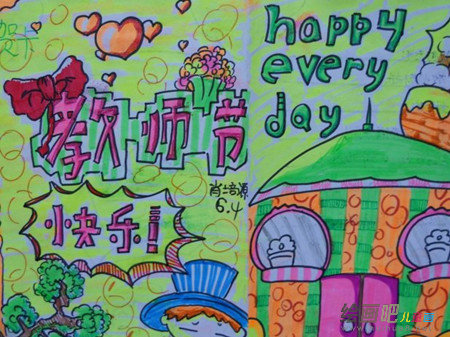 贺卡
教师节
快乐!
肖培源
6.4
happy
every
day
绘画吧